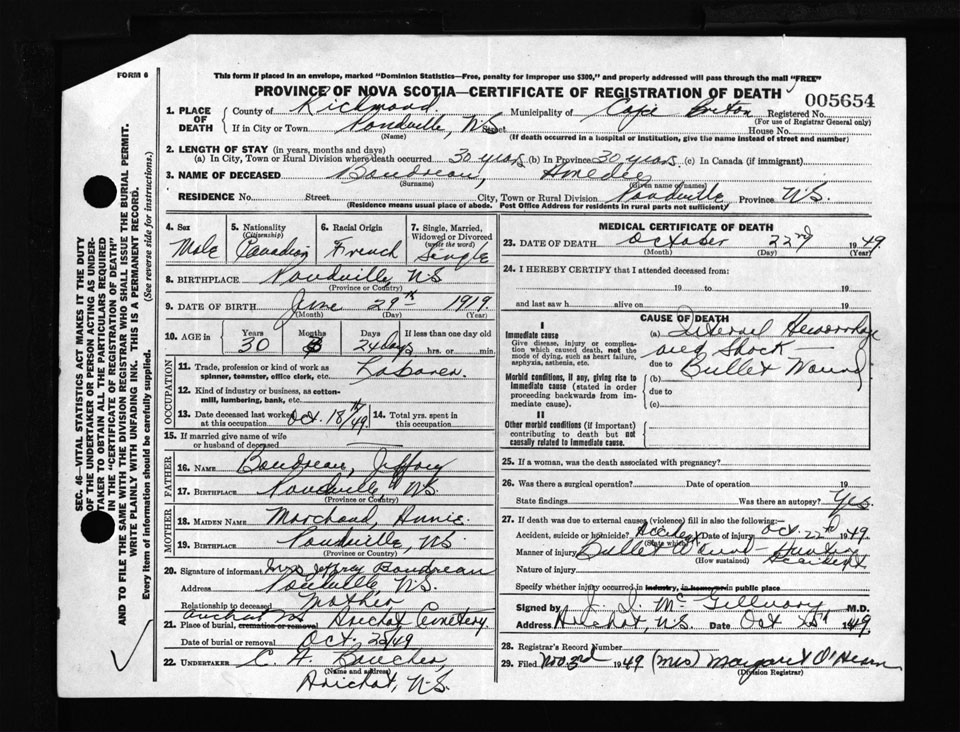 FORM 6
This form if placed in an envelope, marked "Dominion Statistics—Free, penalty for improper use $300," and properly addressed will pass through the mail "FREE"
PROVINCE OF NOVA SCOTIA—CERTIFICATE OF REGISTRATION OF DEATH
005654
1. PLACE OF DEATH
County of Richmond Municipality of Cape Breton Registered No.
(For use of Registrar General only)
If in City or Town Poudville, N.S. Street House No.
(Name) (If death occurred in a hospital or institution, give the name instead of street and number)
2. LENGTH OF STAY (in years, months and days)
(a) In City, Town or Rural Division where death occurred 30 years (b) In Province 30 years (c) In Canada (if immigrant)
3. NAME OF DECEASED Boudreau, Amedie
(Surname) (Given name or names)
RESIDENCE No. Street City, Town or Rural Division Poudville Province N.S.
(Residence means usual place of abode. Post Office Address for residents in rural parts not sufficient)
4. Sex Male
5. Nationality (Citizenship) Canadian
6. Racial Origin French
7. Single, Married, Widowed or Divorced (write the word) Single
8. BIRTHPLACE Poudville, N.S.
(Province or Country)
9. DATE OF BIRTH June 29th 1919.
(Month) (Day) (Year)
10. AGE in Years Months Days If less than one day old
30 24 days hrs. or min.
OCCUPATION
11. Trade, profession or kind of work as spinner, teamster, office clerk, etc. Laborer.
12. Kind of industry or business, as cotton-mill, lumbering, bank, etc.
13. Date deceased last worked at this occupation Oct. 18th/49.
14. Total yrs. spent in this occupation
15. If married give name of wife or husband of deceased
FATHER
16. NAME Boudreau, Jeffrey
17. BIRTHPLACE Poudville N.S.
(Province or Country)
MOTHER
18. MAIDEN NAME Marchand, Annie.
19. BIRTHPLACE Poudville, N.S.
(Province or Country)
20. Signature of informant Mrs Jeffrey Boudreau
Address Poudville N.S.
Relationship to deceased Mother
Arichat NS
21. Place of burial, cremation or removal Arichat Cemetery
Date of burial or removal Oct. 25/49
22. UNDERTAKER C. A. Boucher
(Name and address)
Arichat, N.S.
MEDICAL CERTIFICATE OF DEATH
23. DATE OF DEATH October 22nd 1949.
(Month) (Day) (Year)
24. I HEREBY CERTIFY that I attended deceased from:
19 to 19
and last saw h alive on 19
CAUSE OF DEATH
I
Immediate cause
Give disease, injury or complication which caused death, not the mode of dying, such as heart failure, asphyxia, asthenia, etc.
(a) Internal Hemorrhage
and Shock
due to Bullet Wound
Morbid conditions, if any, giving rise to immediate cause (stated in order proceeding backwards from immediate cause).
(b)
due to
(c)
II
Other morbid conditions (if important) contributing to death but not causally related to immediate cause.
25. If a woman, was the death associated with pregnancy?
26. Was there a surgical operation? Date of operation 19
State findings Was there an autopsy? Yes.
27. If death was due to external causes (violence) fill in also the following:—
Accident, suicide or homicide? Accident Date of injury Oct. 22nd 1949.
(State which)
Manner of injury Bullet Wound – Hunting Accident
(How sustained)
Nature of injury
Specify whether injury occurred in industry, in home or in public place
Signed by J. J. McGillivary M.D.
Address Arichat, N.S. Date Oct 25th 1949
28. Registrar's Record Number
29. Filed Nov. 3rd 1949 (Mrs) Margaret O'Hearn
(Division Registrar)
SEC. 46—VITAL STATISTICS ACT MAKES IT THE DUTY
OF THE UNDERTAKER OR PERSON ACTING AS UNDER-
TAKER TO OBTAIN ALL THE PARTICULARS REQUIRED
IN THE "CERTIFICATE OF REGISTRATION OF DEATH"
AND TO FILE THE SAME WITH THE DIVISION REGISTRAR WHO SHALL ISSUE THE BURIAL PERMIT.
WRITE PLAINLY WITH UNFADING INK. THIS IS A PERMANENT RECORD.
Every item of information should be carefully supplied. (See reverse side for instructions.)